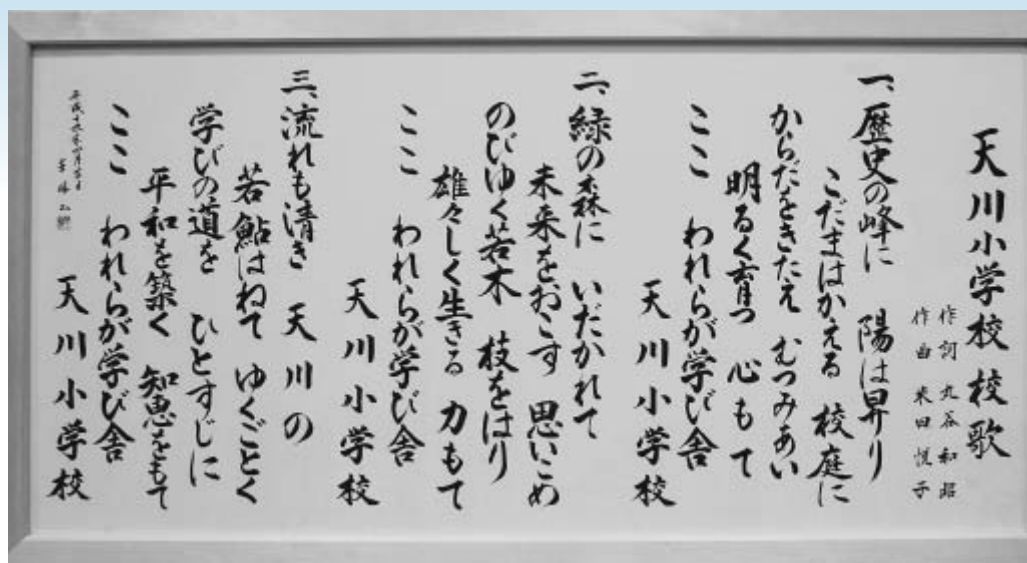 天川小学校 校歌
作詞 丸谷和昭
作曲 米田悦子
一、歴史の峰に 陽は昇り
こだまはかえる 校庭に
からだをきたえ むつみあい
明るく育つ 心もて
ここ われらが学び舎
天川小学校
二、緑の森に いだかれて
未来をおこす 思いこめ
のびゆく若木 枝をはり
雄々しく生きる 力もて
ここ われらが学び舎
天川小学校
三、流れも清き 天川の
若鮎はねて ゆくごとく
学びの道を ひとすじに
平和を築く 知恵をもて
ここ われらが学び舎
天川小学校